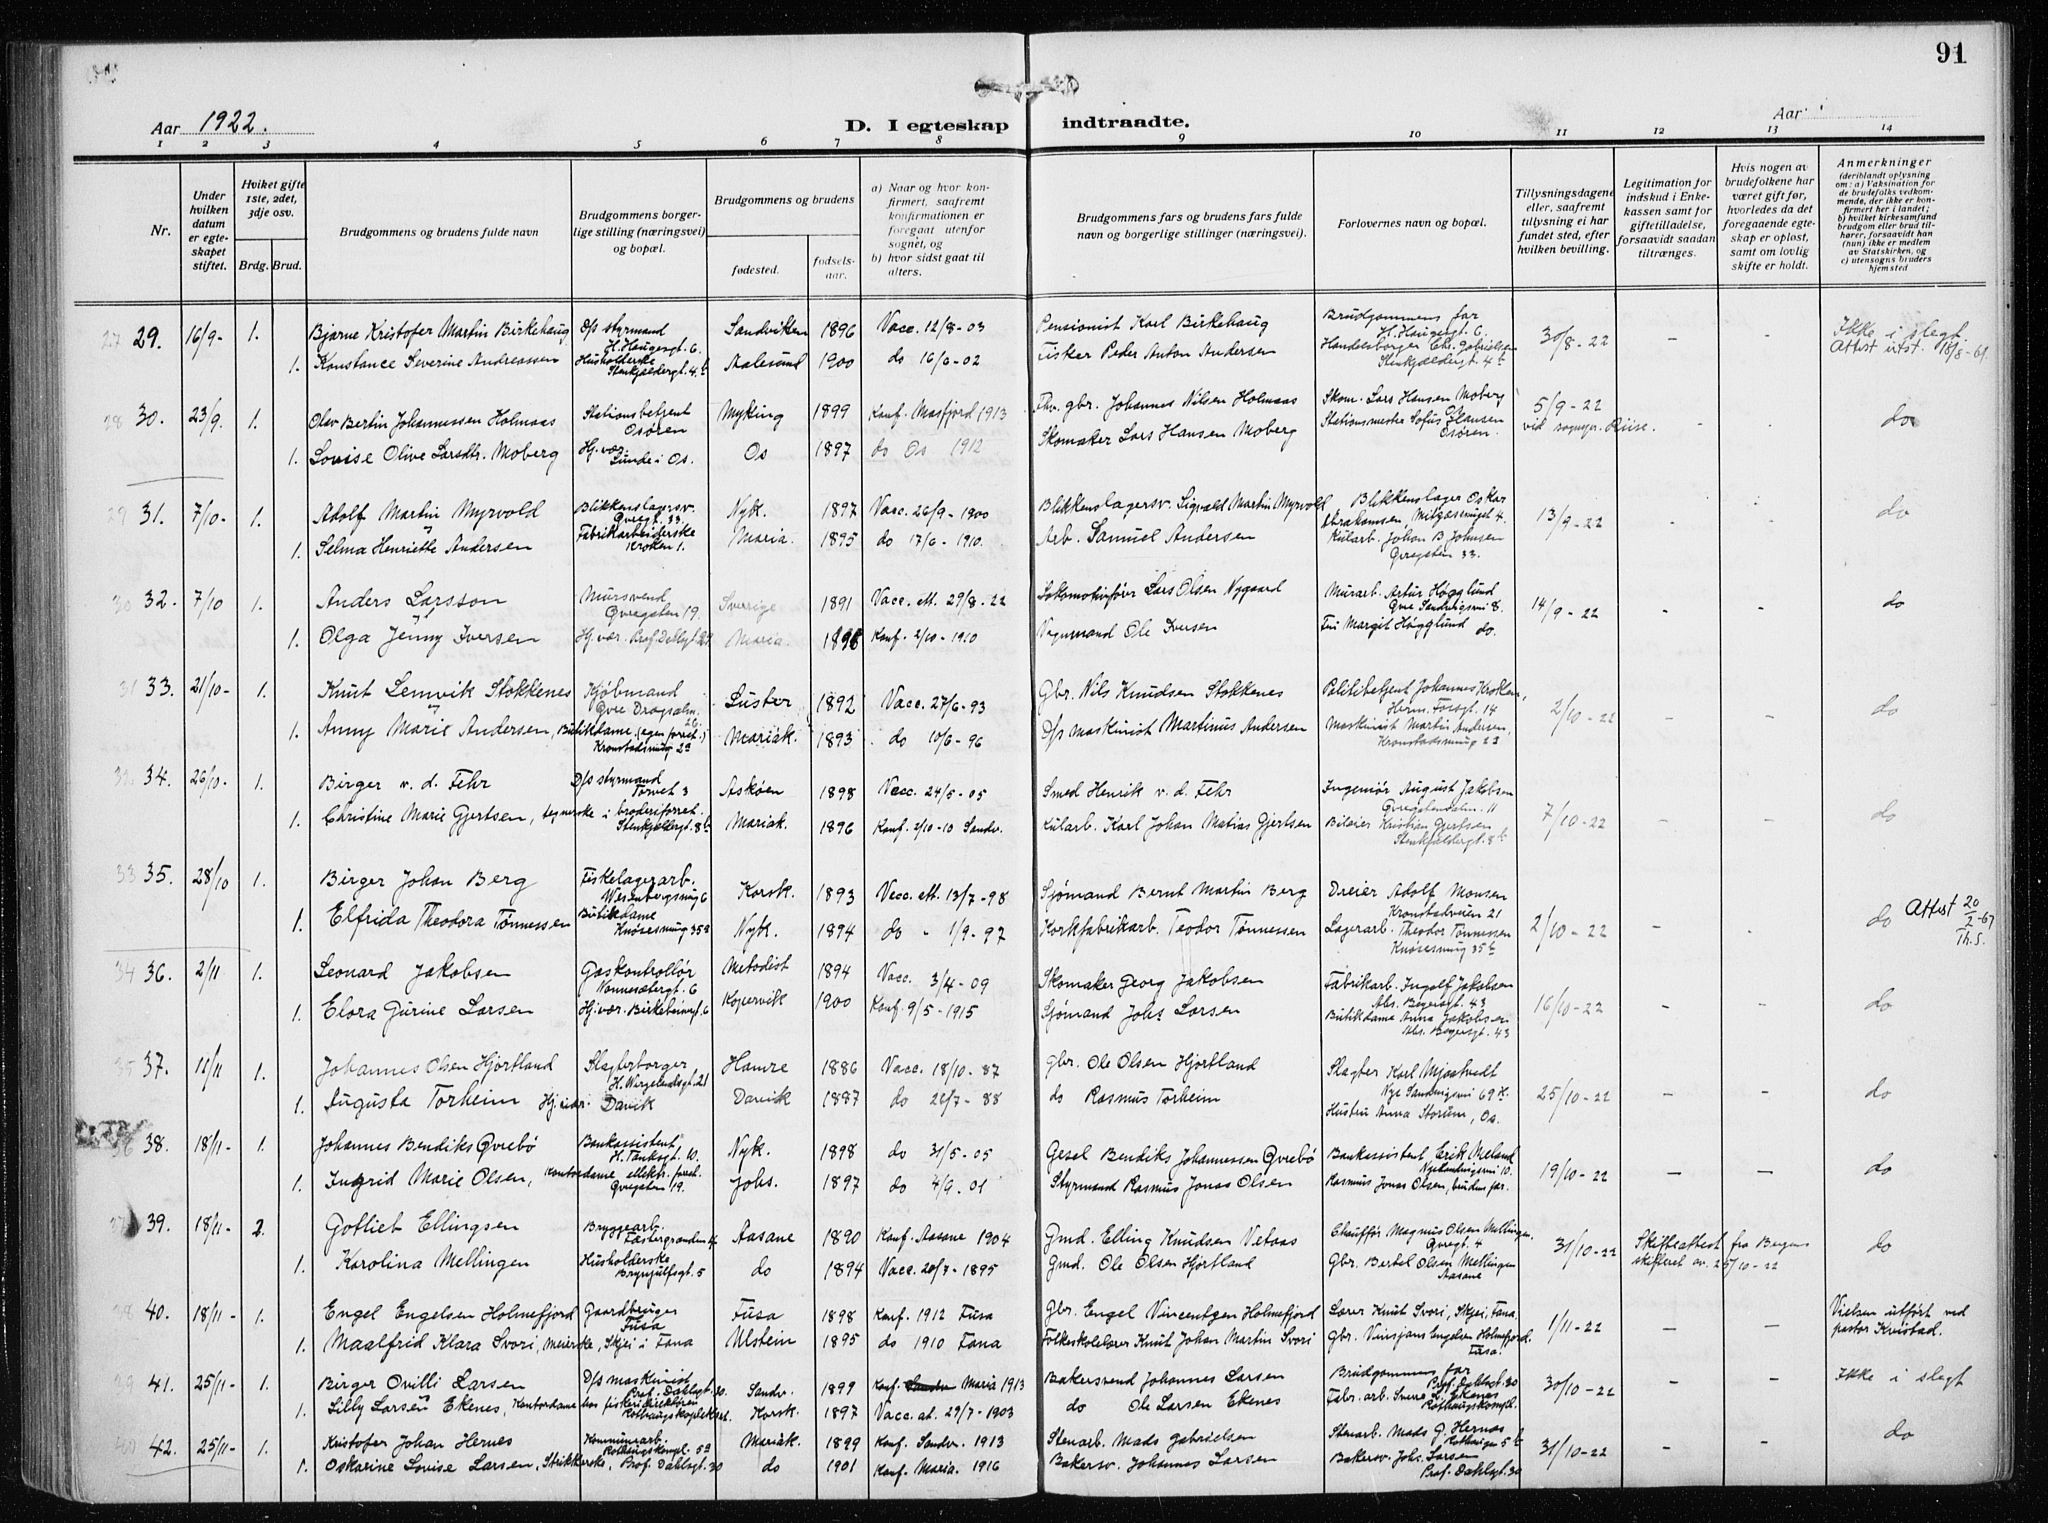 91
Aar 1922.
D. I egteskap indtraadte.
Aar
1 2 3 4 5 6 7 8 9 10 11 12 13 14
Nr.
Under hvilken datum er egteskapet stiftet.
Hvilket gifte 1ste, 2det, 3dje osv.
Brdg. Brud.
Brudgommens og brudens fulde navn
Brudgommens borgerlige stilling (næringsvei) og bopæl.
Brudgommens og brudens
fødested.
fødselsaar.
a) Naar og hvor konfirmert, saafremt konfirmationen er foregaat utenfor sognet, og
b) hvor sidst gaat til alters.
Brudgommens fars og brudens fars fulde navn og borgerlige stillinger (næringsvei).
Forlovernes navn og bopæl.
Tillysningsdagene eller, saafremt tillysning ei har fundet sted, efter hvilken bevilling.
Legitimation for indskud i Enkekassen samt for giftetilladelse, forsaavidt saadan tiltrænges.
Hvis nogen av brudefolkene har været gift før, hvorledes da det foregaaende egteskap er opløst, samt om lovlig skifte er holdt.
Anmerkninger
(deriblandt oplysning om: a) Vaksination for de brudefolks vedkommende, der ikke er konfirmert her i landet; b) hvilket kirkesamfund brudgom eller brud tilhører, forsaavidt han (hun) ikke er medlem av Statskirken, og c) utensogns bruders hjemsted
27 29. 16/9- 1. Bjarne Kristofer Martin Birkehaug D/s styrmand H. Haugesgt. 6. Sandviken 1896 Vacc. 12/8-03 Pensionist Karl Birkehaug Brudgommens far H. Haugesgt. 6. 30/8-22 - - Ikke i slegt
1. Konstance Severine Andreassen Husholderske Stenkjældergt. 4b Aalesund 1900 do 16/6-02 Fisker Peder Anton Andersen Handelsborger Chr. Gabrielsen Stenkjeldergt. 4b Attest utst. 18/8-61
28 30. 23/9. 1. Olav Bertin Johannessen Holmaas Stationsbetjent Osören Myking 1899 Konf. Masfjord 1913 Fhv. gbr. Johannes Nilsen Holmaas Skom. Lars Hansen Moberg Os 5/9-22 vid sognepr. Riise. - - do
1. Lovise Olive Larsdtr. Moberg Hj. vær. Lunde i Os. Os 1897 do Os 1912 Skomaker Lars Hansen Moberg Stationsmester Sofus Hansen Osören.
29 31. 7/10- 1. Adolf Martin Myrvold Blikkenslagersv. Øvregt. 33. Nyk. 1897 Vacc. 26/9-1900 Blikkenslagersv. Sigvald Martin Myrvold Blikkenslager Oskar Abrahamsen, 13/9-22 - - do
1. Selma Henriette Andersen Fabrikarbeiderske Kroken 1. Maria. 1895 do 17/6-1910. Arb. Samuel Andersen Kularb. Johan B Johnsen Øvregaten 33.
30 32. 7/10 1. Anders Larsson Mursvend Øvregaten 19. Sverige 1891 Vacc. att. 29/8-22 Lokomotivfører Lars Olsen Nygaard Murarb. Artur Högglund Øvre Sandvigsvei 8. 14/9-22 - - do
1. Olga Jenny Iversen Hj. vær. Prof. Dahlsgt. Maria. 1896 Konf. 2/10-1910 Vognmand Ole Iversen Fru Margit Högglund do.
31 33. 21/10- 1. Knut Lemvik Stokkenes Kjøbmand Øvre Dragsalm. 26. Luster 1892 Vacc. 27/6-93 Gbr. Nils Knudsen Stokkenes Politibetjent Johannes Kroken, Herm. Fossgt. 14 2/10-22 - - do
1. Anny Marie Andersen, Butikdame (egen forret.) Kronstadsmug 2a Mariak. 1893 do 10/6-96 D/s maskinist Martinus Andersen Maskinist Martin Andersen, Kronstadsmug 22
32. 34. 26/10- 1. Birger v. d. Fehr D/s styrmand Torvet 3 Askøen 1898 Vacc. 24/5-05 Smed Henrik v. d. Fehr Ingeniør August Jakobsen Øvregatenalm. 11 7/10-22 - - do
1. Christine Marie Gjertsen, tegnerske i broderiforret. Stenkjeldergt. 8b Mariak. 1896 Konf. 2/10-10 Sandv. Kularb. Karl Johan Matias Gjertsen Bileier Kristian Gjertsen Stenkjældergt. 8b
33 35. 28/10 1. Birger Johan Berg Fiskelagerarb. Wesenbergsmug 6 Korsk. 1893 Vacc. att. 13/7-98 Sjømand Bernt Martin Berg Dreier Adolf Monsen Kronstadveien 21 2/10-22 - - do Attest 20/2-67 Th.S.
1. Elfrida Theodora Tönnessen Butikdame Knøsesmug 35a Nyk. 1894 do " 1/9-97 Korkfabrikarb. Teodor Tönnessen Lagerarb. Theodor Tönnessen Knøsesmug 35b
34 36. 2/11 1. Leonard Jakobsen Gaskontrollør Nonnesætergt. 6 Metodist 1894 Vacc. 3/4-09 Skomaker Georg Jakobsen Fabrikarb. Ingolf Jakobsen Abs. Beyersgt. 43 16/10-22 - - do
1. Elora Gurine Larsen Hj. vær. Birkebeinergt. 6 Kopervik 1900 Konf. 9/5-1915 Sjømand Johs Larsen Butikdame Anna Jakobsen Abs. Beyersgt. 43
35 37. 11/11 1. Johannes Olsen Hjortland Slagterborger H. Wergelandsgt. 21 Hamre 1886 Vacc. 18/10-87 Gbr. Ole Olsen Hjortland Slagter Karl Mjaatvedt Nye Sandvigsvei 69 25/10-22 - - do
1. Augusta Torheim Hj. vær. Davik Davik 1887 do 22/7-88 do Rasmus Torheim Hustru Anna Storum, Os.
36 38. 18/11- 1. Johannes Bendiks Øvrebö Bankassistent, H. Tanksgt. 10. Nyk. 1898 do 31/5-05 Gesel Bendiks Johannessen Øvrebö Bankassistent Erik Meland Nye Sandvigsvei 10. 19/10-22 - - do
1. Ingrid Marie Olsen, Kontordame, elektr. forr. Øvregaten 19. Johs. 1897 do 4/9-01 Styrmand Rasmus Jonas Olsen Rasmus Jonas Olsen, brudens far.
37 39. 18/11- 2. Gotlieb Ellingsen Bryggearb. Fæstergranden 4 Aasane 1890 Konf. Aasane 1904 Gmd. Elling Knudsen Vetaas Chauffør Magnus Olsen Mellingen, Øvregt. 4 31/10-22 Skifteattest fra Bergens skifteret av 25/10-22 do
1. Karolina Mellingen Husholderske Brynjulfsgt. 5 do 1894 Vacc. 20/7-1895 Gmd. Ole Olsen Hjortland Gbr. Bertel Olsen Mellingen Aasane
38 40. 18/11- 1. Engel Engelsen Holmefjord Gaardbruger Fusa Fusa 1898 Konf. 1912 Fusa Gbr. Engel Vincentsen Holmefjord Lærer Knut Svori, Skjei, Fana. 1/11-22 - - Vielsen utført ved pastor Knistad.
1. Maalfrid Klara Svori, Meierske, Skjei i Fana Ulstein 1895 do 1910 Fana Folkeskolelærer Knut Johan Martin Svori Gbr. Vinsjans Engelsen Holmefjord. Fusa.
39 41. 25/11- 1. Birger Ovilli Larsen D/s maskinist Prof. Dahlsgt. 30 Sandv. 1899 Konf. Maria 1913 Bakersvend Johannes Larsen Brudgommens far Prof. Dahlsgt. 30 30/10-22 - - Ikke i slegt
1. Lilly Larsen Ekenes, Kontordame hos fiskeridirektören Rothaugskomplekset. Korsk. 1897 Vacc. at. 29/7-1903 do Ole Larsen Ekenes Fabr. arb. Sverre L. Ekenes Rothaugskompl.
40 42. 25/11- 1. Kristofer Johan Hernes Kommunearb. Rothaugskompl. 5a Mariak. 1899 Konf. Sandv. 1913 Stenarb. Mads Gabrielsen Stenarb. Mads G. Hernes Rothaugen 5b 31/10-22 - - do
1. Oskarine Lovise Larsen, Strikkerske, Prof. Dahlsgt. 30 do 1901 Konf. Maria. 1916 Bakersv. Johannes Larsen Bakersv. Johs. Larsen Prof. Dahlsgt. 30